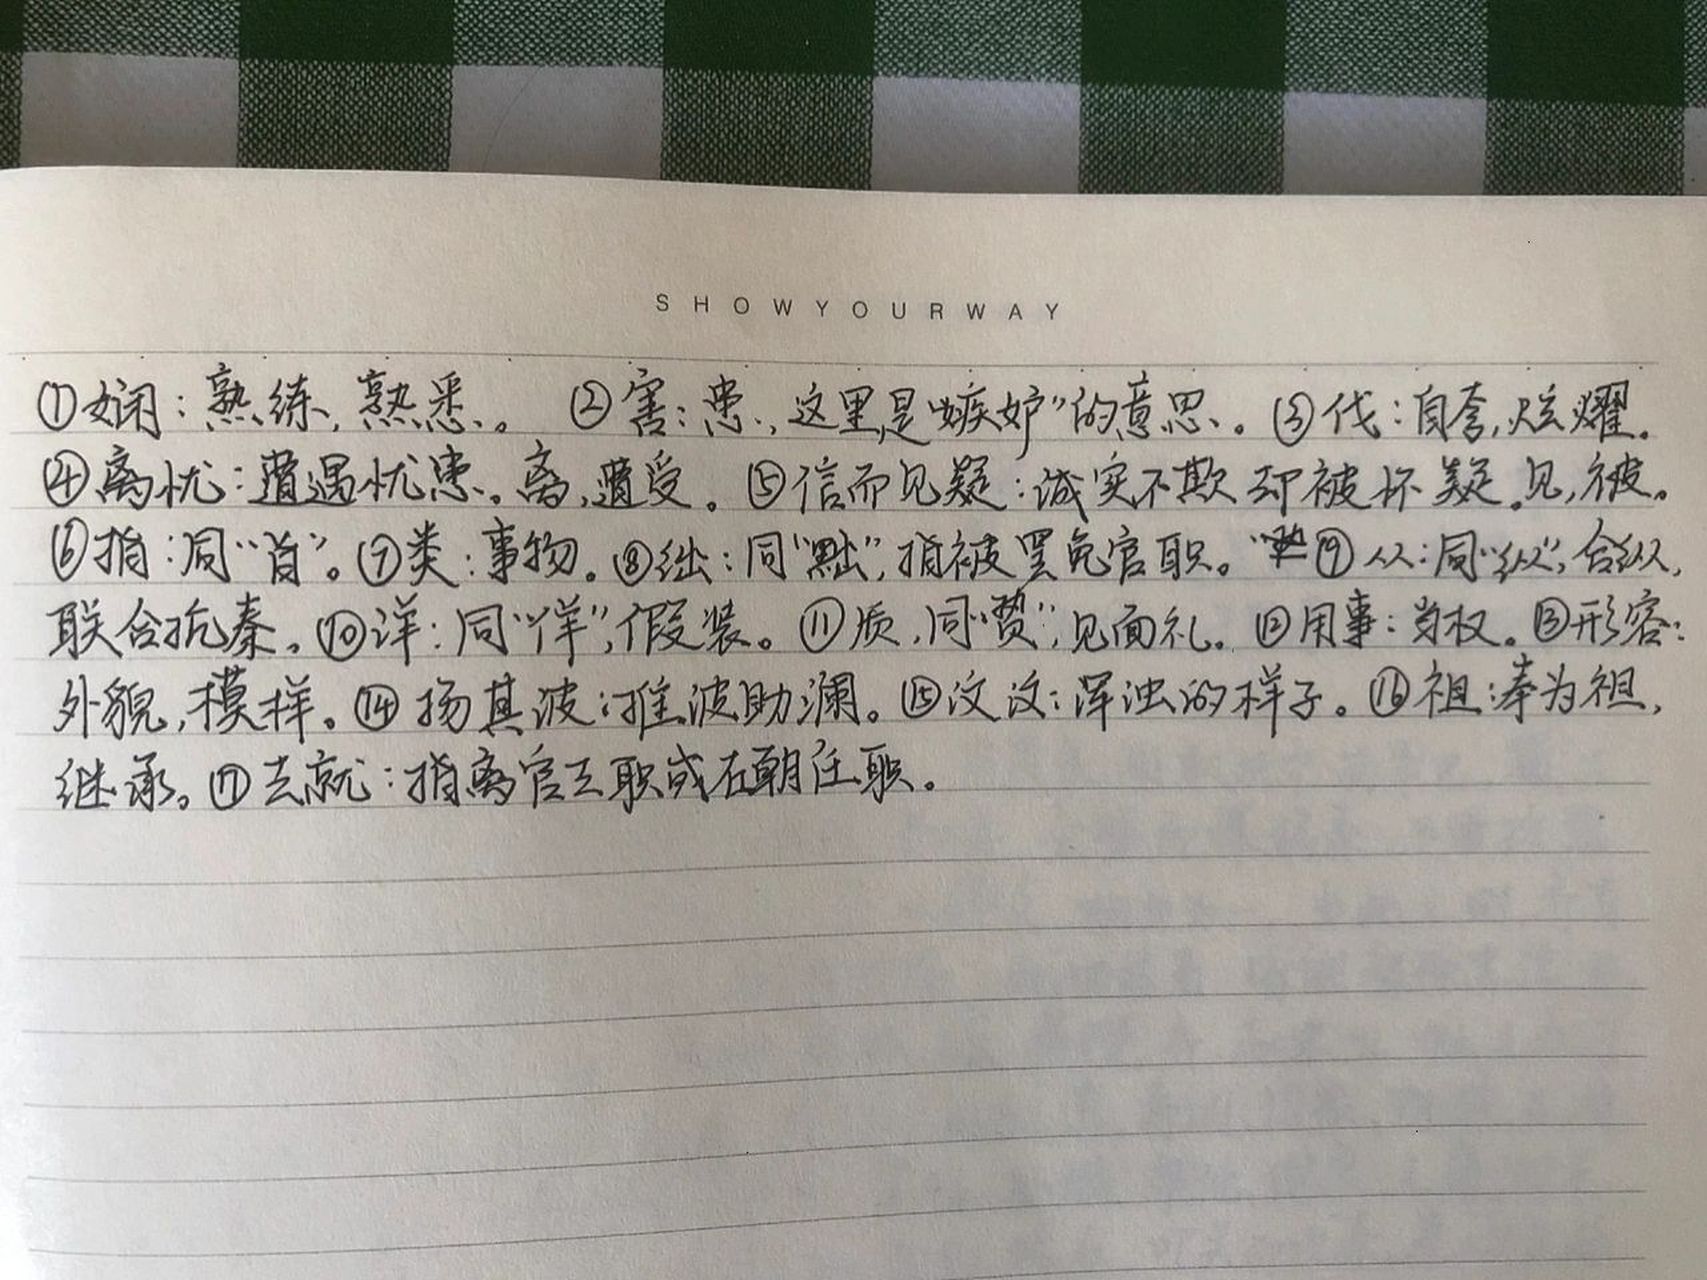 SHOWYOURWAY
①娴：熟练，熟悉。 ②害：患，这里是“嫉妒”的意思。③伐：自夸，炫耀。
④离忧：遭遇忧患。离，遭受。⑤信而见疑：诚实不欺却被怀疑。见，被。
⑥指：同“旨”。⑦类：事物。⑧绌：同“黜”，指被罢免官职。⑨从：同“纵”，合纵，
联合抗秦。⑩详：同“佯”，假装。⑪质，同“贽”，见面礼。⑫用事：当权。⑬形容：
外貌，模样。⑭扬其波：推波助澜。⑮汶汶：浑浊的样子。⑯祖：奉为祖，
继承。⑰去就：指离官去职或在朝任职。